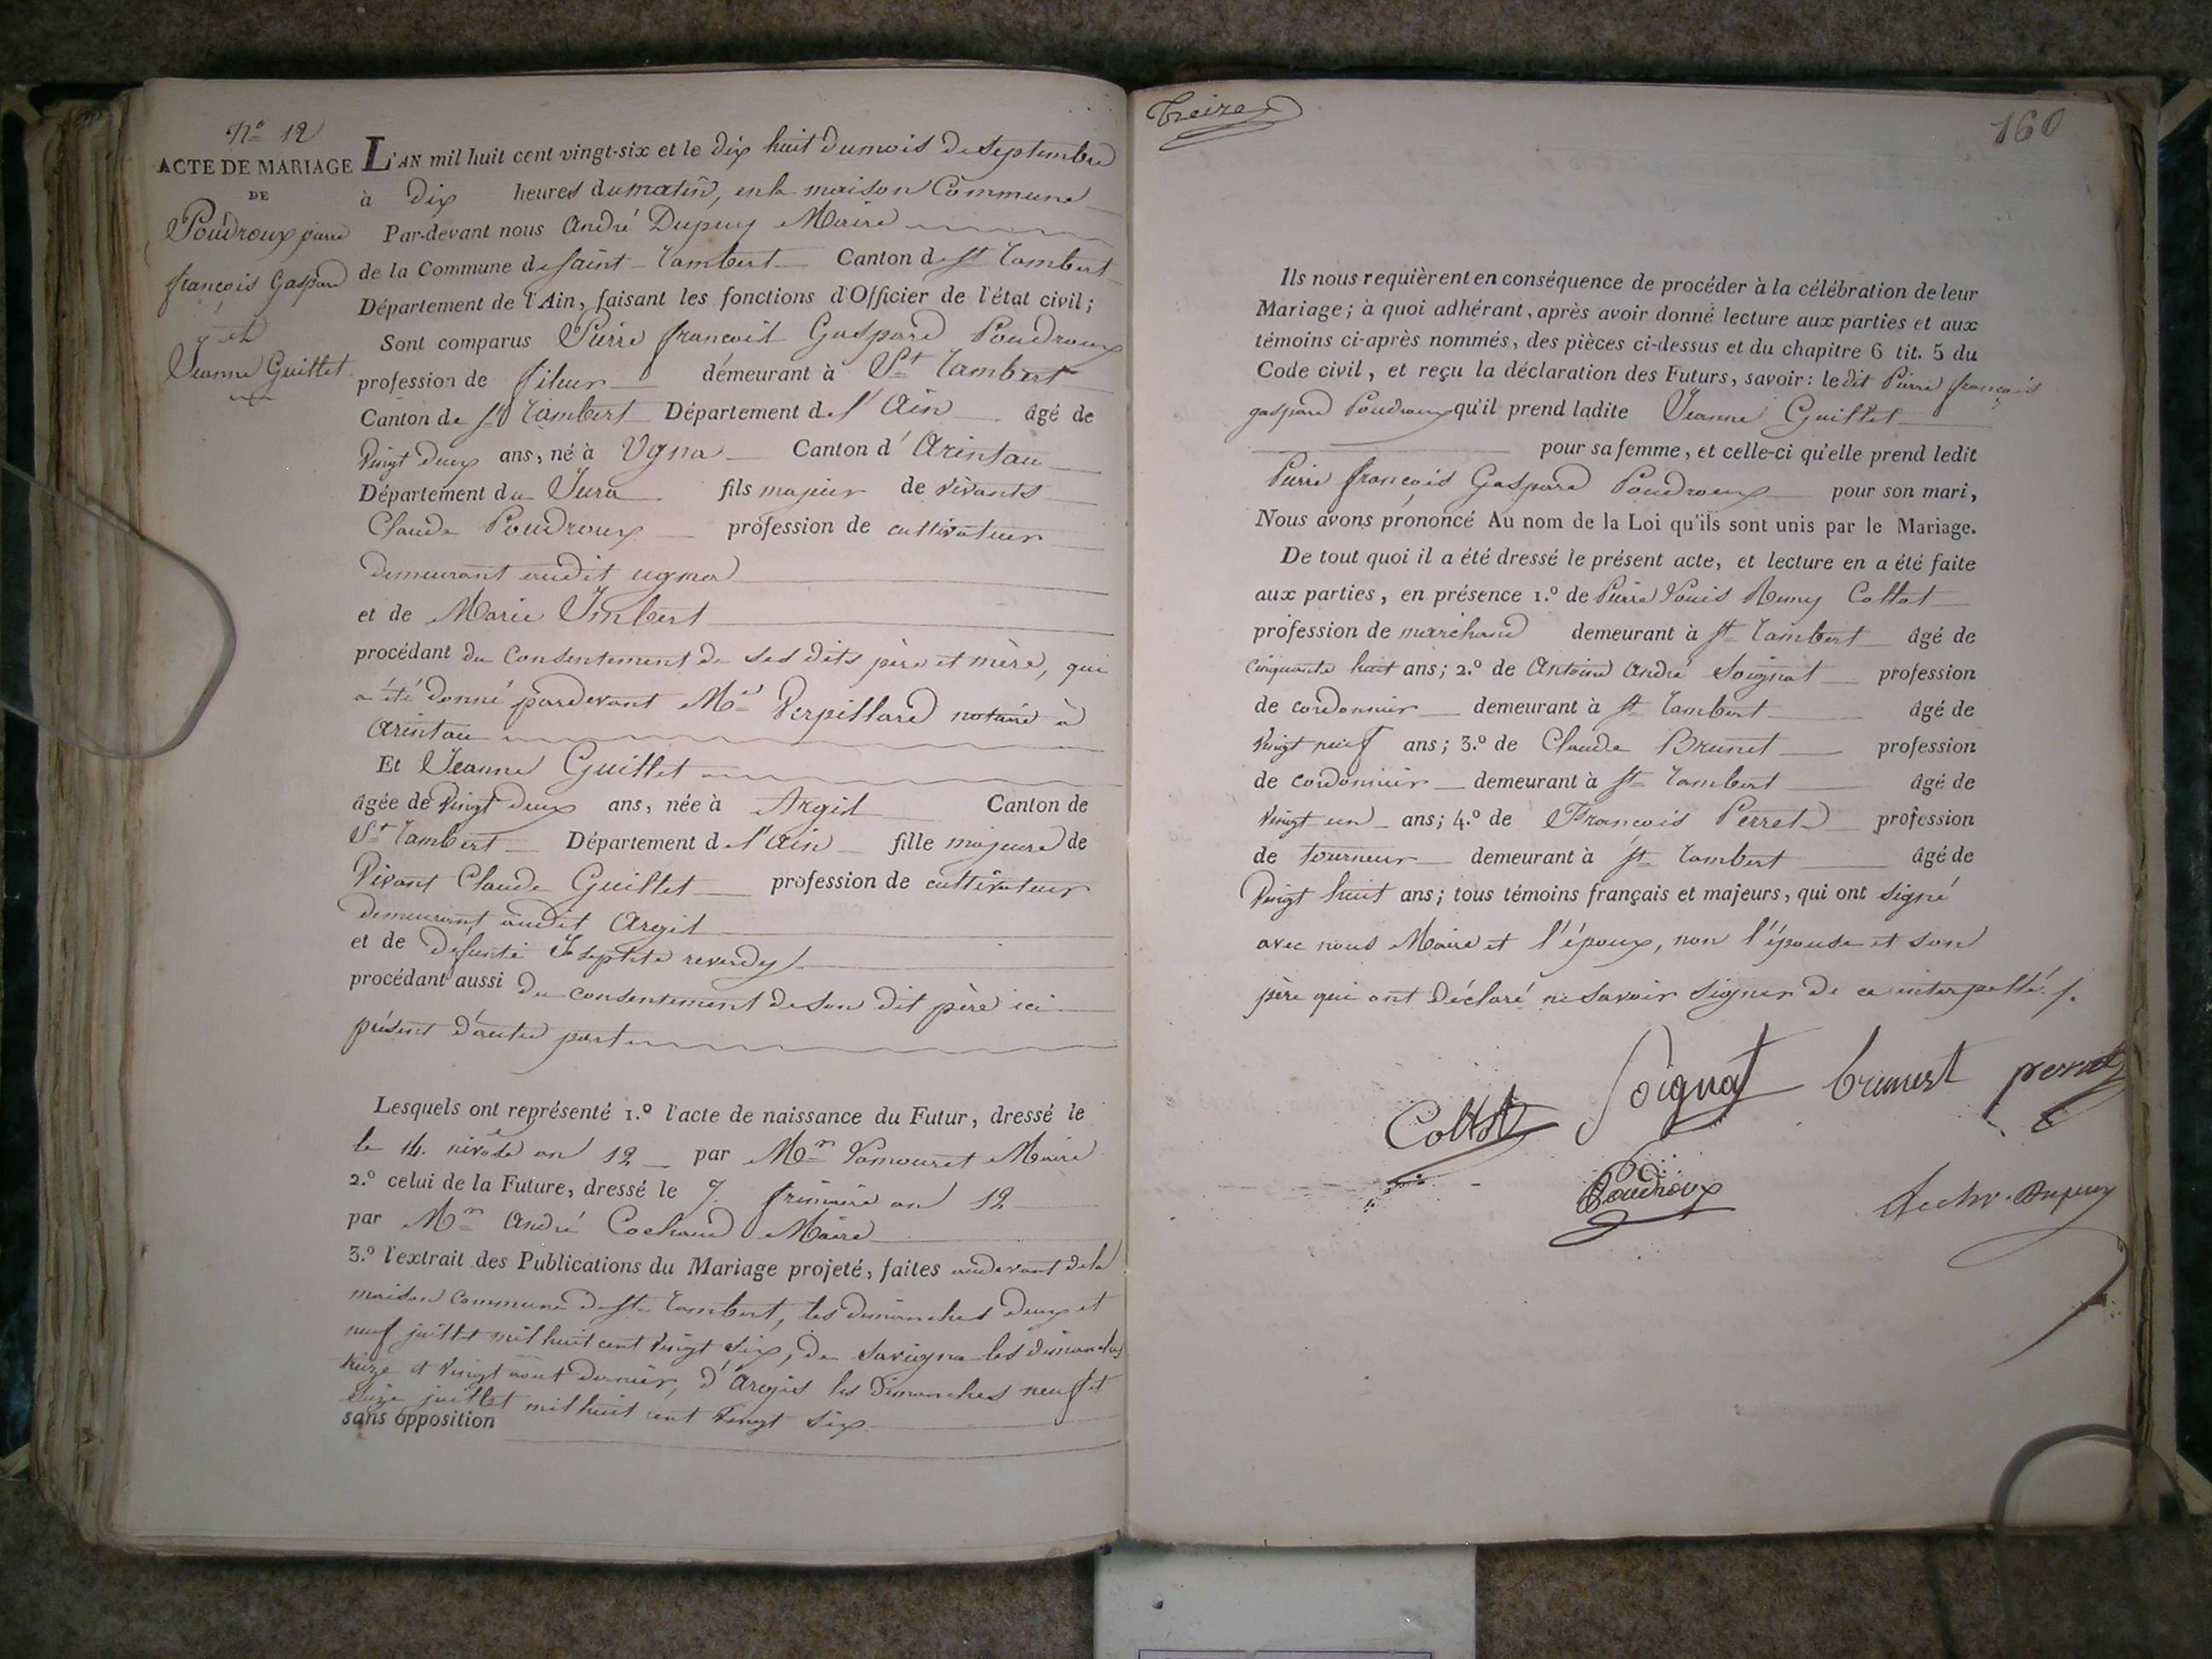 N.º 12
ACTE DE MARIAGE
DE
Poudroux pierre
françois Gaspard
et
Jeanne Guillet
L'AN mil huit cent vingt-six et le dix huit du mois de Septembre
à dix heures du matin, en la maison Commune
Par-devant nous André Dupuy Maire
de la Commune de saint-Rambert Canton de St Rambert
Département de l'Ain, faisant les fonctions d'Officier de l'état civil;
Sont comparus Pierre françois Gaspard Poudroux
profession de fileur démeurant à St Rambert
Canton de St Rambert Département de l'Ain âgé de
Vingt deux ans, né à Ugna Canton d'Arintau
Département du Jura fils majeur de vivants
Claude Poudroux profession de cultivateur
demeurant audit ugna
et de Marie Imbert
procédant du Consentement de ses dits père et mère, qui
a été donné pardevant Me Verpillard notaire à
Arintau
Et Jeanne Guillet
âgée de Vingt deux ans, née à Argis Canton de
St Rambert Département de l'Ain fille majeure de
Vivant Claude Guillet profession de cultivateur
demeurant audit Argis
et de défunte reverdy
procédant aussi du consentement de son dit père ici
présent d'autre part
Lesquels ont représenté 1.º l'acte de naissance du Futur, dressé le
le 14. nivôse an 12 par Mr Lamouret Maire
2.º celui de la Future, dressé le 7. frimaire an 12
par Mr André Cochaud Maire
3.º l'extrait des Publications du Mariage projeté, faites audevant de la
maison commune de St Rambert, les dimanches deux et
neuf juillet mil huit cent vingt six, de Savigna les dimanches
treize et vingt aout dernier, d'Argis les dimanches neuf et
seize juillet mil huit cent vingt six
sans opposition
Treize
160
Ils nous requièrent en conséquence de procéder à la célébration de leur
Mariage; à quoi adhérant, après avoir donné lecture aux parties et aux
témoins ci-après nommés, des pièces ci-dessus et du chapitre 6 tit. 5 du
Code civil, et reçu la déclaration des Futurs, savoir: ledit Pierre françois
gaspard Poudroux qu'il prend ladite Jeanne Guillet
pour sa femme, et celle-ci qu'elle prend ledit
Pierre françois Gaspard Poudroux pour son mari,
Nous avons prononcé Au nom de la Loi qu'ils sont unis par le Mariage.
De tout quoi il a été dressé le présent acte, et lecture en a été faite
aux parties, en présence 1.º de Pierre Louis Remy Collot
profession de marchand demeurant à St Rambert âgé de
cinquante huit ans; 2.º de Antoine André Soignat profession
de cordonnier demeurant à St Rambert âgé de
Vingt neuf ans; 3.º de Claude Brunet profession
de cordonnier demeurant à St Rambert âgé de
Vingt un ans; 4.º de François Perret profession
de tourneur demeurant à St Rambert âgé de
Vingt huit ans; tous témoins français et majeurs, qui ont signé
avec nous Maire et l'époux, non l'épouse et son
père qui ont déclaré ne savoir signer de ce interpellé./.
Collot Soignat brunest perret
Poudroux Dupuy